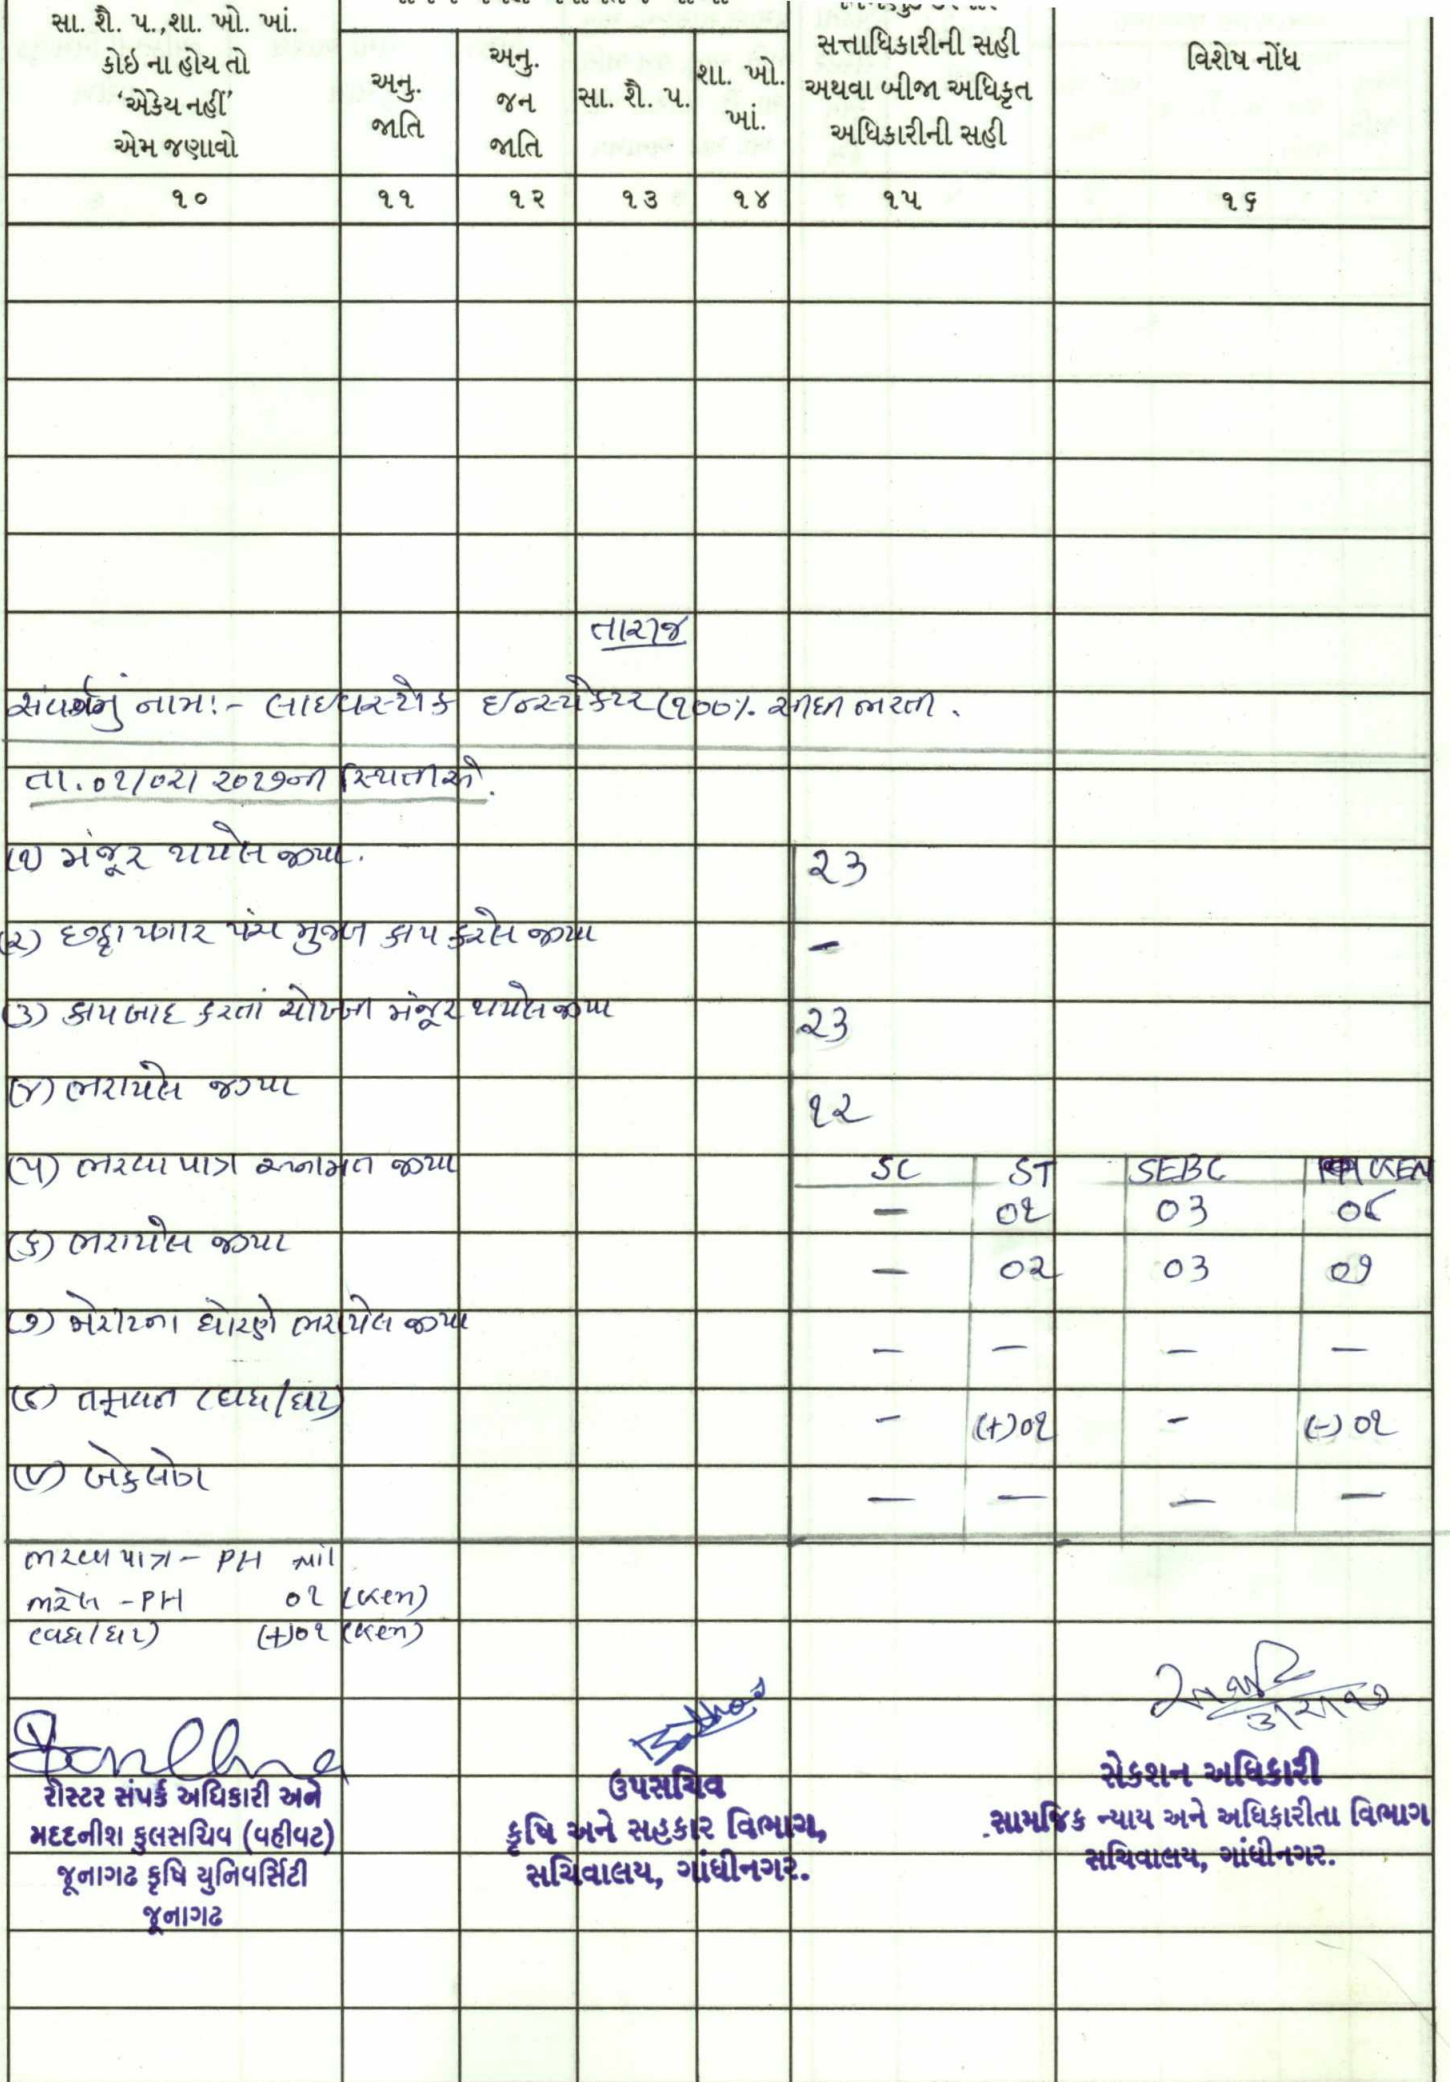 સા. શૈ. પ.,શા. ખો. ખાં.
કોઈ ના હોય તો
‘એકેય નહીં’
એમ જણાવો
અનુ.
જાતિ
અનુ.
જન
જાતિ
સા. શૈ. પ.
શા. ખો.
ખાં.
સત્તાધિકારીની સહી
અથવા બીજા અધિકૃત
અધિકારીની સહી
વિશેષ નોંધ
૧૦ ૧૧ ૧૨ ૧૩ ૧૪ ૧૫ ૧૬
તારીજ
સંવર્ગનું નામ:- લાઈવસ્ટોક ઈન્સ્પેકટર (૧૦૦% સીધી ભરતી.
તા.૦૧/૦૨/૨૦૧૭ની સ્થિતીએ.
(૧) મંજૂર થયેલ જગ્યા. ૨૩
(૨) છઠ્ઠા પગાર પંચ મુજબ કાપ કરેલ જગ્યા –
(૩) કાપ બાદ કરતાં ચોખ્ખી મંજૂર થયેલ જગ્યા ૨૩
(૪) ભરાયેલ જગ્યા ૧૨
(૫) ભરવા પાત્ર અનામત જગ્યા SC ST SEBC GEN
– ૦૧ ૦૩ ૦૮
(૬) ભરાયેલ જગ્યા – ૦૨ ૦૩ ૦૭
(૭) મેરીટના ધોરણે ભરાયેલ જગ્યા – – – –
(૮) તફાવત (વધ/ઘટ) – (+)૦૧ – (-)૦૧
(૯) બેકલોગ – – – –
ભરવા પાત્ર – PH નીલ
ભરેલ – PH ૦૧ (Gen)
(વધ/ઘટ) (+)૦૧ (Gen)
રોસ્ટર સંપર્ક અધિકારી અને
મદદનીશ કુલસચિવ (વહીવટ)
જૂનાગઢ કૃષિ યુનિવર્સિટી
જૂનાગઢ
ઉપસચિવ
કૃષિ અને સહકાર વિભાગ,
સચિવાલય, ગાંધીનગર.
સેકશન અધિકારી
સામાજિક ન્યાય અને અધિકારીતા વિભાગ
સચિવાલય, ગાંધીનગર.